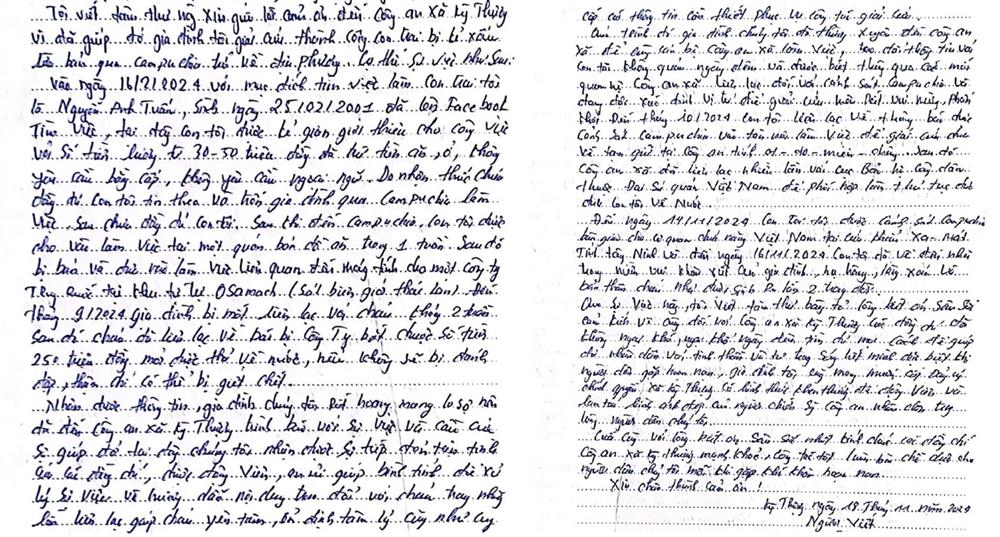 Tôi viết tâm thư này xin gửi lời cảm ơn đến Công an xã Kỳ Thượng
vì đã giúp đỡ gia đình tôi giải cứu thành công con trai bị lừa
bán qua campuchia trở về địa phương. Cụ thể sự việc như sau:
Vào ngày 16/2/2024 với mục đích tìm việc làm con trai tôi
là Nguyễn Anh Tuấn, sinh ngày 25/02/2001 đã lên Facebook
tìm việc, tại đây con tôi được giới thiệu cho công việc
với số tiền lương từ 30-50 triệu đồng đã trừ tiền ăn, ở, không
yêu cầu bằng cấp, không yêu cầu ngoại ngữ. Do nhận thức chưa
đầy đủ con tôi tin theo và trốn gia đình qua campuchia làm
việc. Sau khi đến campuchia, con tôi được
cho vào làm việc tại một quán bán đồ ăn trong 1 tuần. Sau đó
bị bán và đưa vào làm việc liên quan đến máy tính cho một công ty
Trung Quốc tại khu tự trị OSamach (Sát biên giới thái lan). Đến
tháng 9/2024 gia đình bị mất liên lạc với cháu khoảng 2 tuần
sau đó cháu đã liên lạc về báo bị công ty bắt chuộc số tiền
250 triệu đồng mới được thả về nước, nếu không sẽ bị đánh
đập, thậm chí có thể bị giết chết.
Nhận được thông tin, gia đình chúng tôi rất hoang mang lo sợ nên
đã đến Công an xã Kỳ Thượng trình báo với sự việc và cầu cứu
sự giúp đỡ. tại đây chúng tôi nhận được sự tiếp đón tận tình
của các đồng chí, được động viên, an ủi giúp bình tĩnh để xử
lý sự việc và hướng dẫn nội dung trao đổi với cháu trong những
lần liên lạc giúp cháu yên tâm, ổn định tâm lý cũng như cung
cấp các thông tin cần thiết phục vụ công tác giải cứu.
Quá trình đó gia đình chúng tôi đã thường xuyên đến công an
xã để cùng cán bộ Công an xã làm việc, trao đổi thông tin với
con tôi không quản ngày đêm và được biết thông qua các mối
quan hệ Công an xã liên lạc đối với cảnh sát Campuchia và
đang xác định vị trí để giải cứu nên rất vui mừng, phấn
khởi. Đến tháng 10/2024 con tôi liên lạc về thông báo được
Cảnh sát Campuchia vào tận nơi làm việc để giải cứu đưa
về tạm giữ tại Công an tỉnh Sau đó
Công an xã đã liên lạc nhiều lần với cục Bảo hộ công dân
thuộc Đại Sứ quán Việt Nam để phối hợp làm thủ tục đưa
cho con tôi về nước.
Đến ngày 14/11/2024 con trai tôi được cảnh sát Campuchia
bàn giao cho cơ quan chức năng Việt Nam tại cửa khẩu Xa-Mát
tỉnh Tây Ninh và đến ngày 16/11/2024 con tôi đã về đến nhà
trong niềm vui khôn xiết của gia đình, họ hàng, làng xóm và
bản thân cháu như được sinh ra lần 2 trong đời.
Qua sự việc này, tôi viết tâm thư bày tỏ lòng biết ơn sâu sắc
đối với Công an xã Kỳ Thượng các đồng chí đã
không ngại khó, ngại khổ ngày đêm để giúp
đỡ nhân dân với tinh thần và sự hết mình đặc biệt khi
người dân gặp hoạn nạn, gia đình tôi mong muốn cấp Đảng uỷ
chính quyền xã Kỳ Thượng có hình thức khen thưởng để động viên và
lan tỏa hình ảnh đẹp của người chiến sỹ công an nhân dân trong
lòng người dân chúng tôi.
Cuối cùng với lòng biết ơn sâu sắc nhất kính chúc các đồng chí
Công an xã Kỳ Thượng mạnh khoẻ, công tác tốt luôn là chỗ dựa cho
người dân chúng tôi mỗi khi gặp khó khăn hoạn nạn.
Xin chân thành cảm ơn!
Kỳ Thượng, ngày 18 Tháng 11 năm 2024
Người viết